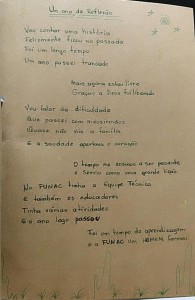 Um ano de Reflexão
Vou contar uma história
Felizmente ficou no passado
Foi um longo tempo
Um ano passei trancado
Mais agora estou livre
Graças a Deus
Vou falar da dificuldade
Que passei com
Quase não via a família
E a saudade apertava o coração
O tempo me ensinou a ser paciente
e serviu como uma grande lição
Na FUNAC tinha a Equipe Técnica
E também os educadores
Tinha várias atividades
E o ano logo passou
Foi um tempo de aprendizagem
e a FUNAC um HOMEM formou